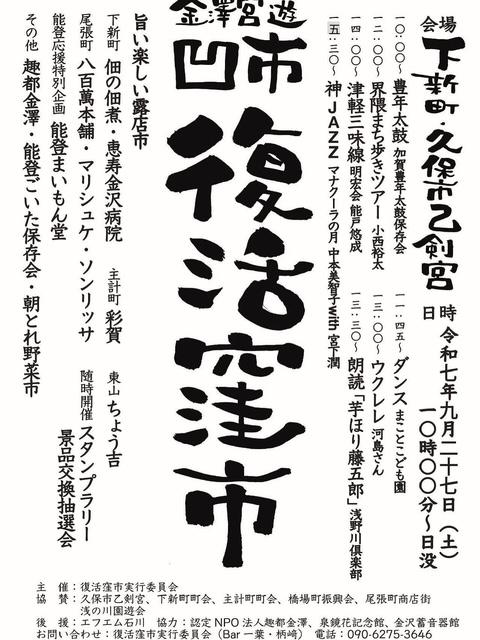 会場 下新町・久保市乙剣宮
日時 令和七年九月二十七日（土）
一〇時〇〇分～日没
一〇：〇〇～ 豊年太鼓 加賀豊年太鼓保存会
一一：四五～ ダンス まことこども園
一二：〇〇～ 界隈まち歩きツアー 小西裕太
一三：〇〇～ ウクレレ 河島さん
一四：〇〇～ 津軽三味線 明宏会 能戸悠成
一三：三〇～ 朗読「芋ほり藤五郎」浅野川倶楽部
一五：三〇～ 神JAZZ マナクーラの月 中本美智子with宮下潤
金澤宮遊
凹市
復活窪市
旨い楽しい露店市
下新町 佃の佃煮・恵寿金沢病院
主計町 彩賀
東山 ちょう吉
尾張町 八百萬本舗・マリシュケ・ソンリッサ
随時開催 スタンプラリー
景品交換抽選会
能登応援特別企画 能登まいもん堂
その他 趣都金澤・能登ごいた保存会・朝とれ野菜市
主 催：復活窪市実行委員会
協 賛：久保市乙剣宮、下新町町会、主計町町会、橋場町振興会、尾張町商店街
浅の川園遊会
後 援：エフエム石川 協力：認定NPO法人趣都金澤、泉鏡花記念館、金沢蓄音器館
お問い合わせ：復活窪市実行委員会（Bar一葉・柄崎）電話：090-6275-3640